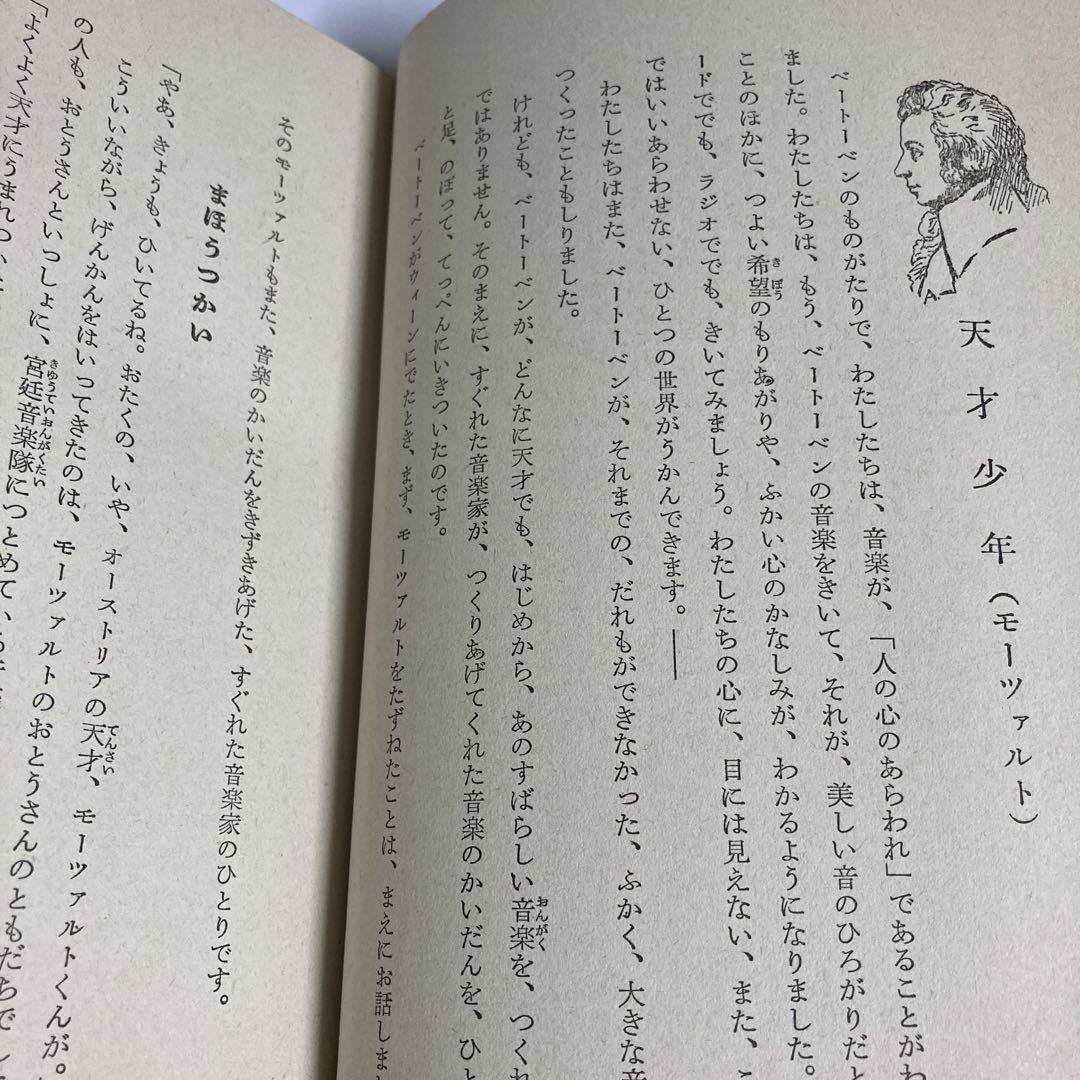 天才少年（モーツァルト）
ベートーベンのものがたりで、わたしたちは、音楽が、「人の心のあらわれ」であることがわ
ました。わたしたちは、もう、ベートーベンの音楽をきいて、それが、美しい音のひろがりだと
ことのほかに、つよい希望のもりあがりや、ふかい心のかなしみが、わかるようになりました。
きぼう
ードででも、ラジオででも、きいてみましょう。わたしたちの心に、目には見えない、また、こ
ではいいあらわせない、ひとつの世界がうかんできます。――
わたしたちはまた、ベートーベンが、それまでの、だれもができなかった、ふかく、大きな音
つくったこともしりました。
けれども、ベートーベンが、どんなに天才でも、はじめから、あのすばらしい音楽を、つくれ
おんがく
ではありません。そのまえに、すぐれた音楽家が、つくりあげてくれた音楽のかいだんを、ひと
と足、のぼって、てっぺんにいきついたのです。
ベートーベンがウィーンにでたとき、まず、モーツァルトをたずねたことは、まえにお話しまし
そのモーツァルトもまた、音楽のかいだんをきずきあげた、すぐれた音楽家のひとりです。
まほうつかい
「やあ、きょうも、ひいてるね。おたくの、いや、オーストリアの天才、モーツァルトくんが。
てんさい
こういいながら、げんかんをはいってきたのは、モーツァルトのおとうさんのともだちで
の人も、おとうさんといっしょに、宮廷音楽隊につとめて
きゅうていおんがくたい
「よくよく天才にうまれつ